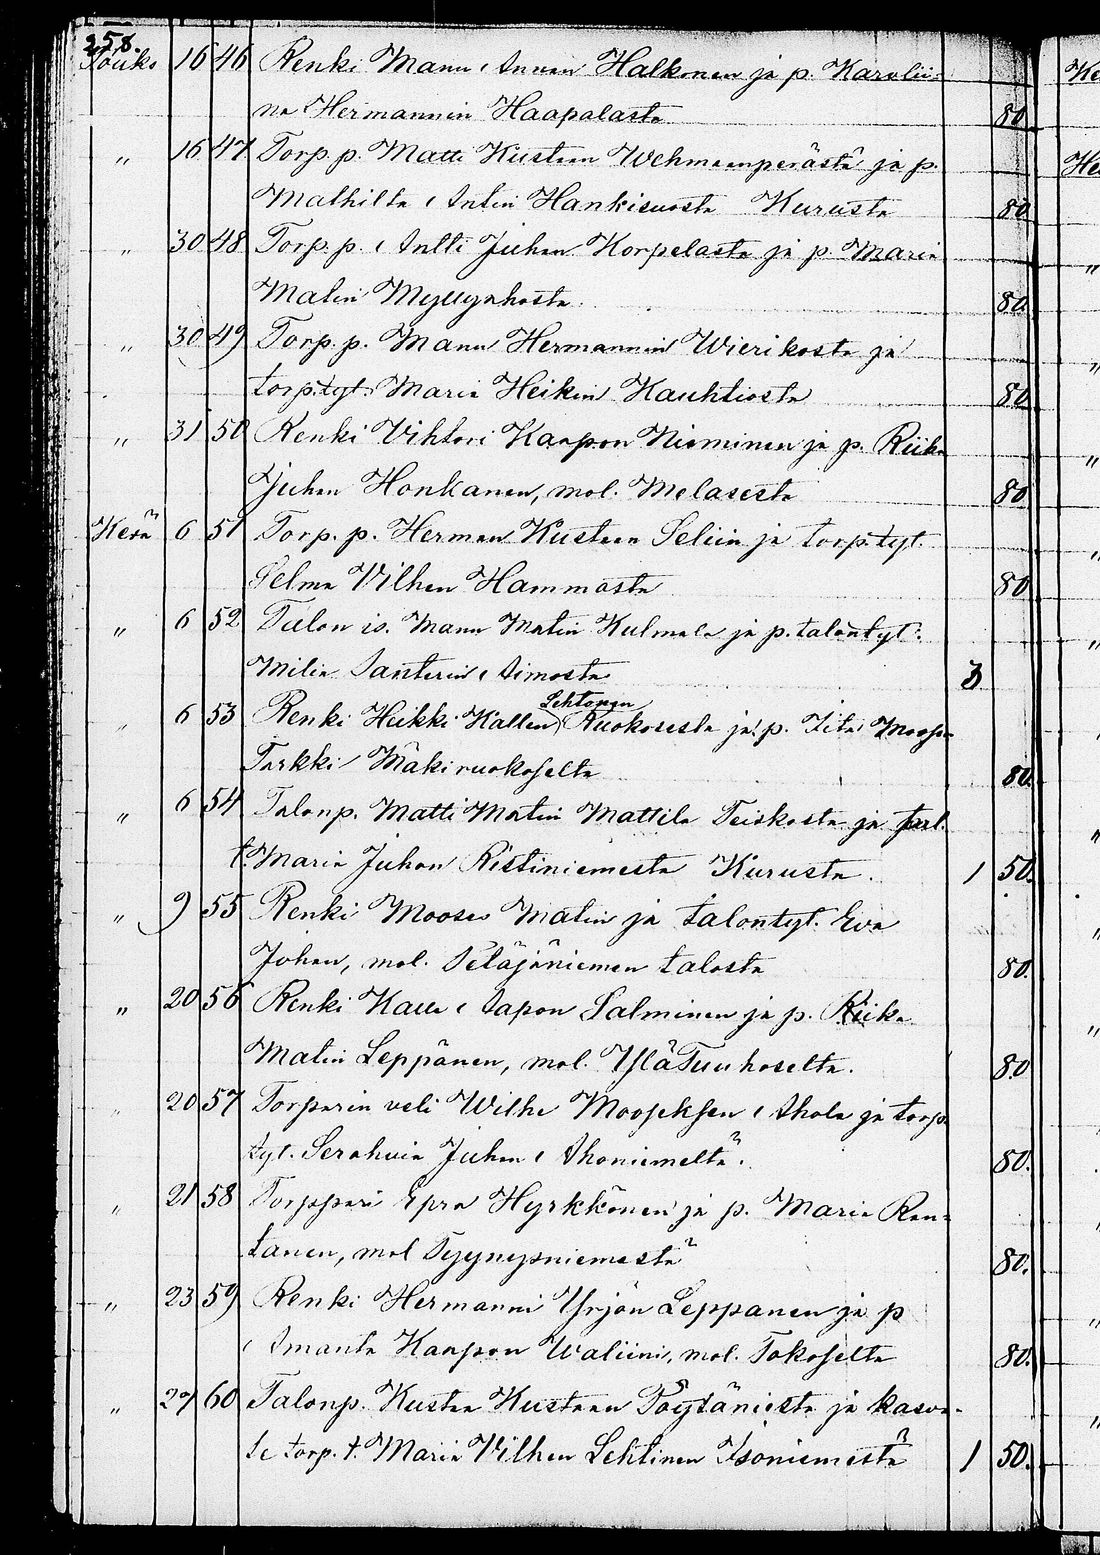 258.
Touko 16 46 Renki Manu Annan Halkonen ja p. Karolii-
na Hermannin Haapalasta 80
„ 16 47 Torp. p. Matti Kustaan Wehmaanperästä ja p.
Mathilta Antin Hankisuosta Kurusta 80
„ 30 48 Torp. p. Antti Juhan Korpelasta ja p. Maria
Matin Myllyahosta. 80
„ 30 49 Torp. p. Manu Hermannin Wierikosta ja
torp. tyt. Maria Heikin Kauhtiosta 80
„ 31 50 Renki Vihtori Kaapon Nieminen ja p. Riika
Juhan Honkanen, mol. Melasesta 80
Kesä 6 51 Torp. p. Herman Kustaan Seliin ja torp. tyt.
Selma Vilhen Hammosta 80
„ 6 52 Talon is. Manu Matin Kulmala ja p. talontyt.
Milia Santerin Aimosta 3
Lehtonen
„ 6 53 Renki Heikki Kallen Ruokosesta ja p. Iita Moose
Tarkki Mäkiruokoselta 80.
„ 6 54 Talonp. Matti Matin Mattila Teiskosta ja tal.
t. Maria Juhan Ristiniemestä Kurusta. 1 50.
„ 9 55 Renki Mooses Matin ja talontyt. Eva
Johan, mol. Petäjäniemen talosta 80.
„ 20 56 Renki Kalle Aapon Salminen ja p. Riika
Matin Leppänen, mol. YläTuuhoselta. 80
„ 20 57 Torparin veli Wilhe Mooseksen Ahola ja torp.
tyt. Serahvia Juhan Ahoniemeltä. 80.
„ 21 58 Torppari Epra Hyrkkönen ja p. Maria Ran-
tanen, mol Tyynysniemestä 80.
„ 23 59 Renki Hermanni Yrjön Leppanen ja p
Amanta Kaapon Waliini, mol. Tokoselta 80.
„ 27 60 Talonp. Kustaa Kustaan Pöytäniestä ja kasva-
te torp. t. Maria Vilhen Lehtinen Isoniemestä 1 50.